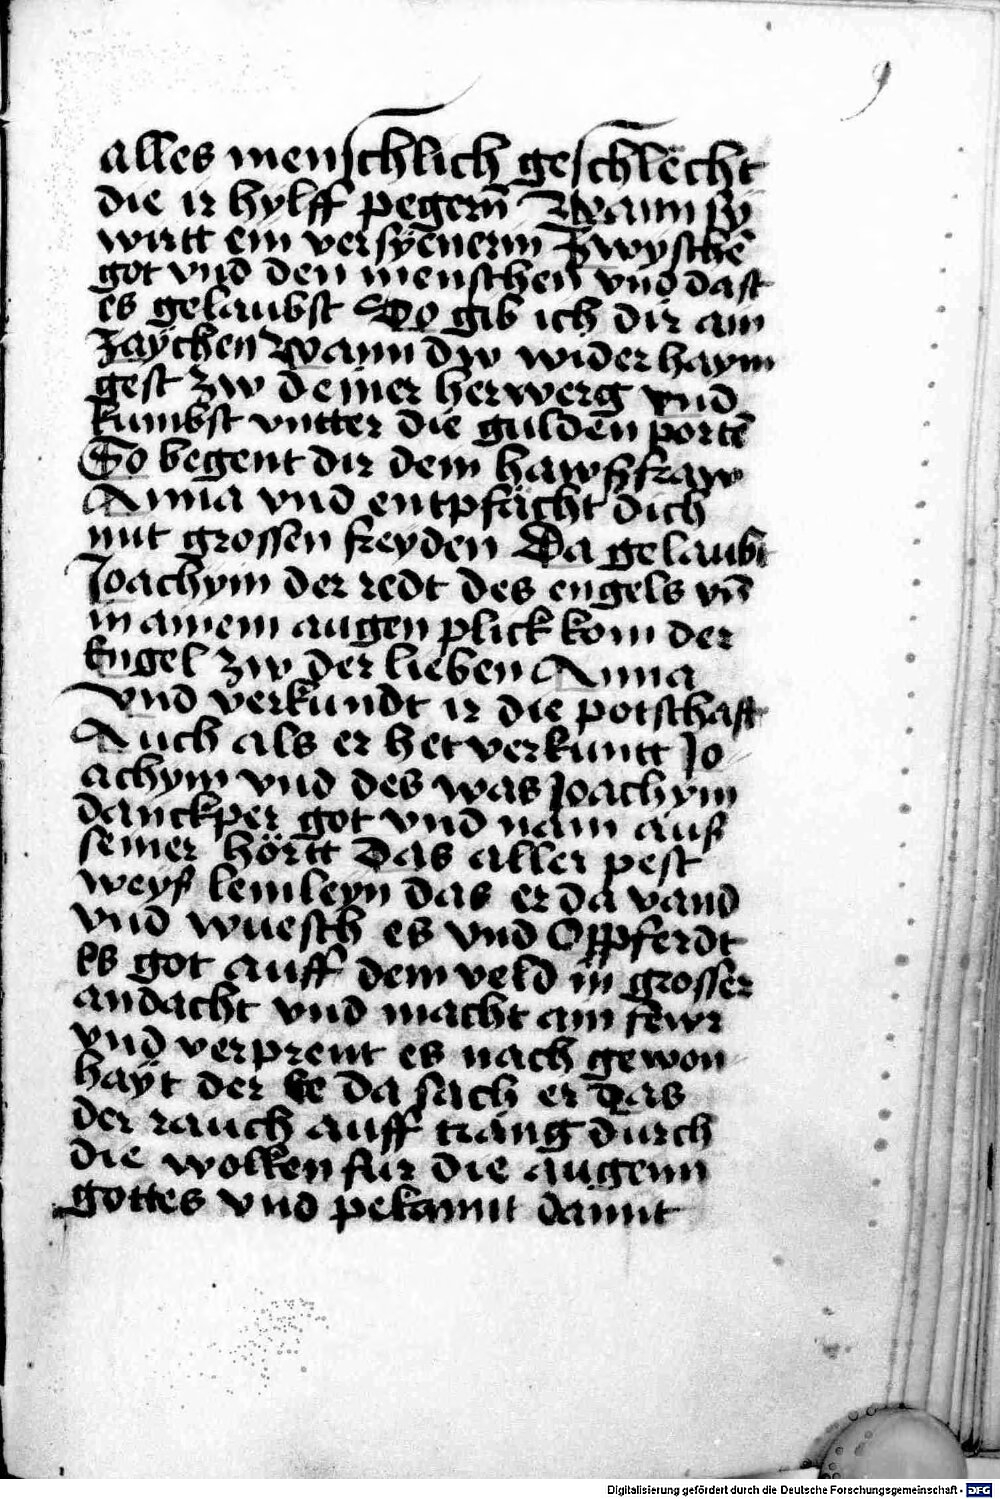 9
alles menschlich geschlecht
die ir hylff pegern̄ Wann sy
wirtt ein versyenerin Zwyschē
got vnd den menschen vnd dast
es gelaubst So gib ich dir ain
zaychen Wann dw wider haym
gest zw deiner herwerg vnd
kumbst vntter die gulden portē
So begent dir dein hawsfraw
Anna vnd entpfächt dich
mit grossen freyden Da gelaubt
Joachym der redt des engels vn̄
in ainem augen plick kom der
Engel zw der lieben Anna
vnd verkundt ir die potschafft
Auch als er het verkuntt Jo
achym vnd des was Joachym
danckper got vnd nam aus
seiner hörtt Das aller pest
weys lemleyn das er da vand
vnd wuesch es vnd Opferdt
es got auff dem veld in grosser
andacht vnd macht ain fewr
vnd verprent es nach gewon
hayt der Ee da sach er das
der rauch auff trang durch
die wolken für die augenn
gottes vnd pekannt damit
Digitalisierung gefördert durch die Deutsche Forschungsgemeinschaft - DFG